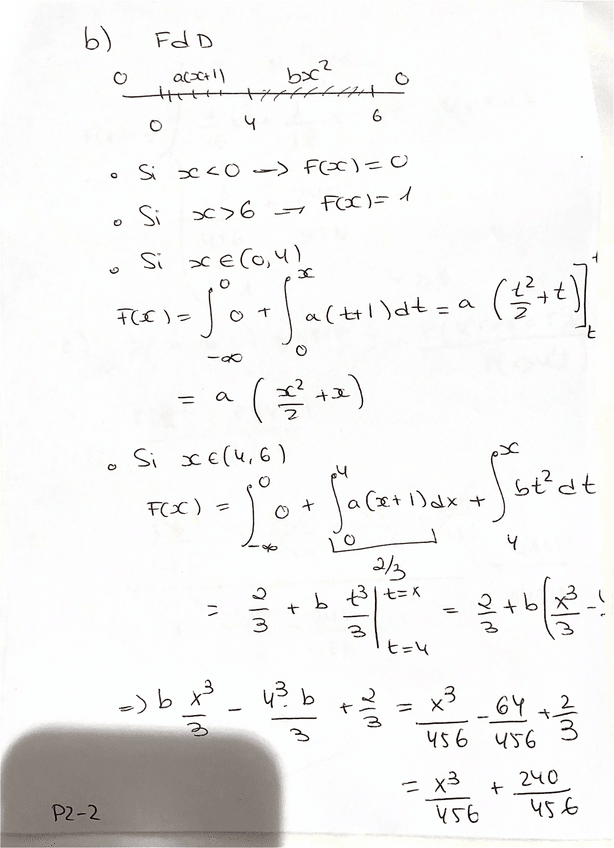 b) FdD
0 a(x+1) bx² 0
0 4 6
• Si x<0 → F(x)=0
• Si x>6 → F(x)=1
• Si x∈(0,4)
F(x) = ∫_{-∞}^{0} 0 + ∫_{0}^{x} a(t+1)dt = a (t²/2 + t)]
= a (x²/2 + x)
• Si x∈(4,6)
F(x) = ∫_{-∞}^{0} 0 + ∫_{0}^{4} a(x+1)dx + ∫_{4}^{x} bt² dt
2/3
= 2/3 + b t³/3 |_{t=4}^{t=x} = 2/3 + b(x³/3 -
=> b x³/3 - 4³·b/3 + 2/3 = x³/456 - 64/456 + 2/3
= x³/456 + 240/456
P2-2